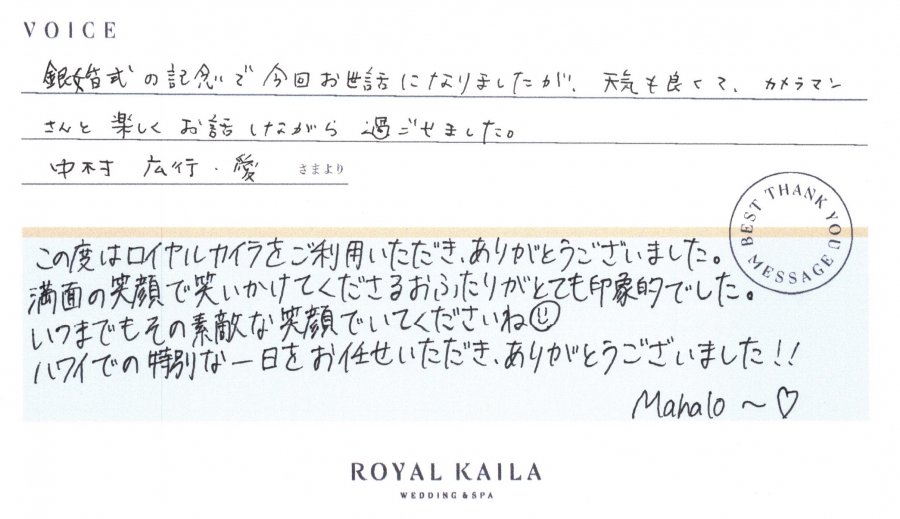 VOICE
銀婚式の記念で今回お世話になりましたが、天気も良くて、カメラマン
さんと楽しくお話しながら過ごせました。
中村 広行・愛 さまより
BEST THANK YOU MESSAGE
この度はロイヤルカイラをご利用いただき、ありがとうございました。
満面の笑顔で笑いかけてくださるおふたりがとても印象的でした。
いつまでもその素敵な笑顔でいてくださいね☺
ハワイでの特別な一日をお任せいただき、ありがとうございました!!
Mahalo ～♡
ROYAL KAILA
WEDDING & SPA